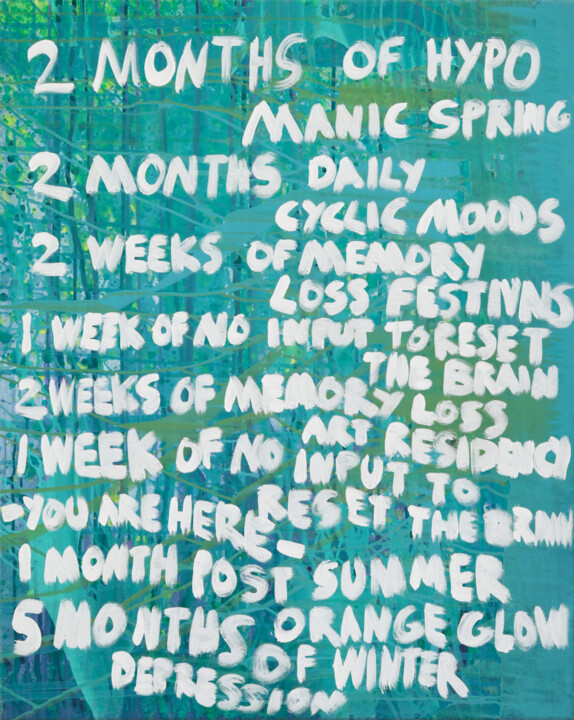 2 MONTHS OF HYPO
MANIC SPRING
2 MONTHS DAILY
CYCLIC MOODS
2 WEEKS OF MEMORY
LOSS FESTIVALS
1 WEEK OF NO INPUT TO RESET
THE BRAIN
2 WEEKS OF MEMORY LOSS
ART RESIDENCY
1 WEEK OF NO INPUT TO
RESET THE BRAIN
-YOU ARE HERE-
1 MONTH POST SUMMER
5 MONTHS ORANGE GLOW
OF WINTER
DEPRESSION